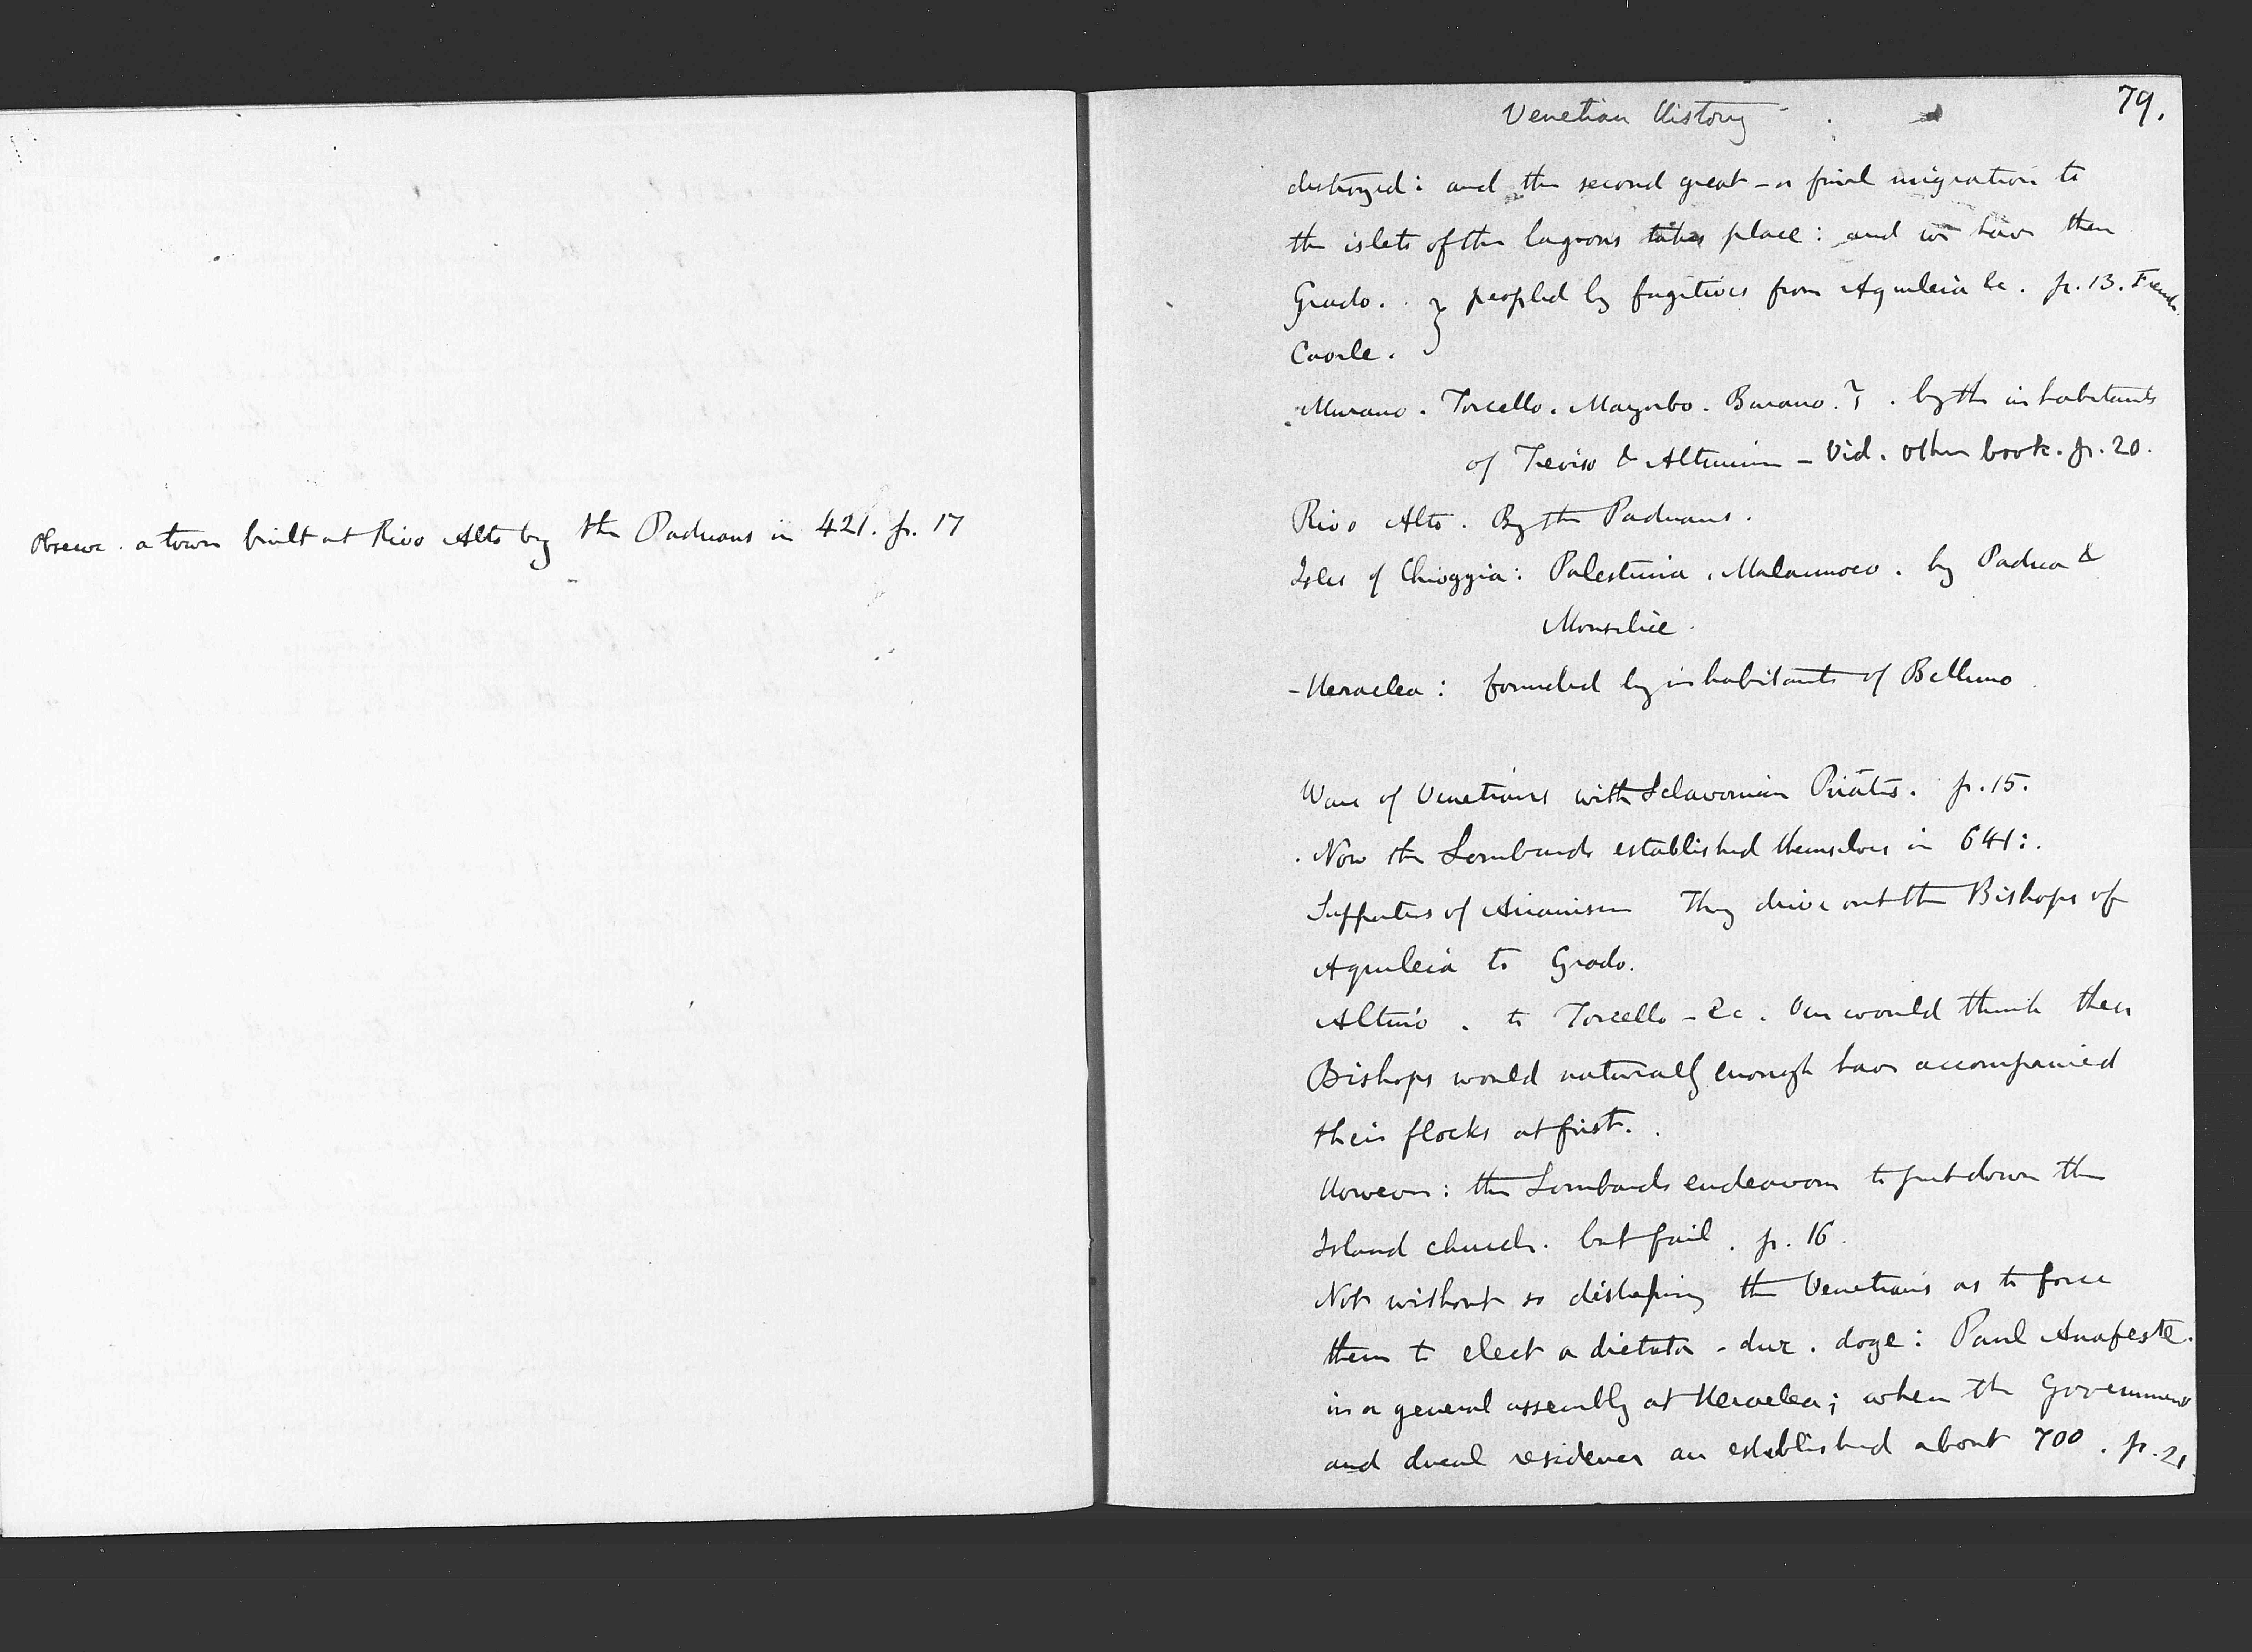 Observe. a town built at Rivo Alto by the Paduans in 421. p. 17
Venetian History
79.
destroyed: and the second great - or final migration to
the islets of the lagoons takes place: and we have then
Grado. } peopled by fugitives from Aquileia &c. p. 13. French
Caorle.
Murano. Torcello. Mazorbo. Burano. ? . by the inhabitants
of Treviso & Altinum - Vid. other book. p. 20.
Rivo Alto. By the Paduans.
Isles of Chioggia: Palestrina. Malamocco. by Padua &
Monselice.
- Heraclea: founded by inhabitants of Belluno
War of Venetians with Sclavonian Pirates. p. 15.
. Now the Lombards established themselves in 641:.
Supporters of Arianism They drive out the Bishops of
Aquileia to Grado.
Altino. to Torcello - &c. One would think these
Bishops would naturally enough have accompanied
their flocks at first.
However: the Lombards endeavour to put down the
Island church. but fail. p. 16.
Not without so the Venetians as to force
them to elect a dictator - dux. doge: Paul Anafeste.
in a general assembly at Heraclea; when the Government
and ducal residence are established about 700. p. 21